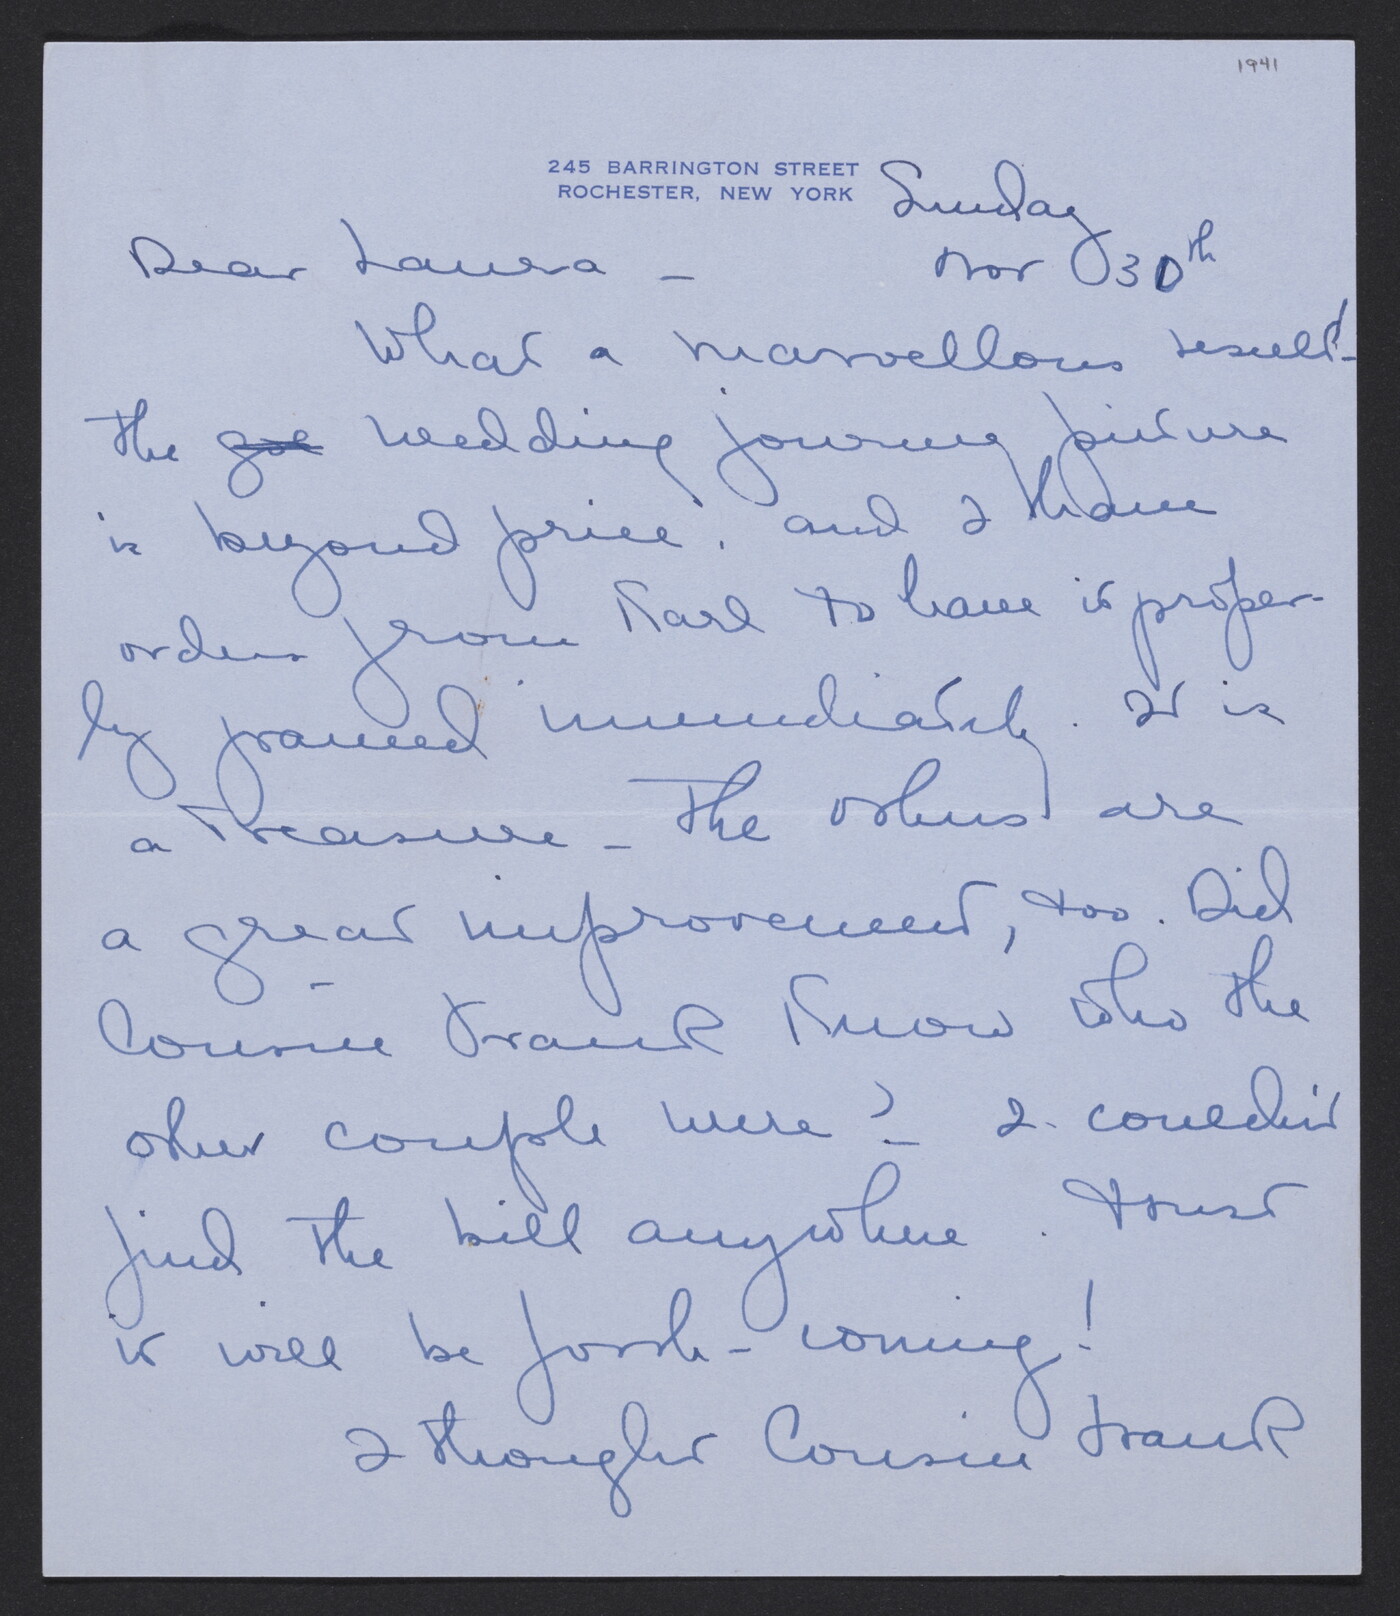 1941
245 BARRINGTON STREET
ROCHESTER, NEW YORK
Sunday
Dear Laura - Nov 30th
What a marvellous result! -
the wedding journey picture
is beyond price! and I have
orders from Karl to have it proper-
ly framed immediately. It is
a treasure - The others are
a great improvement, too. Did
Cousin Frank Know who the
other couple were? - I couldn't
find the bill anywhere. Trust
it will be forth-coming!
I thought Cousin Frank